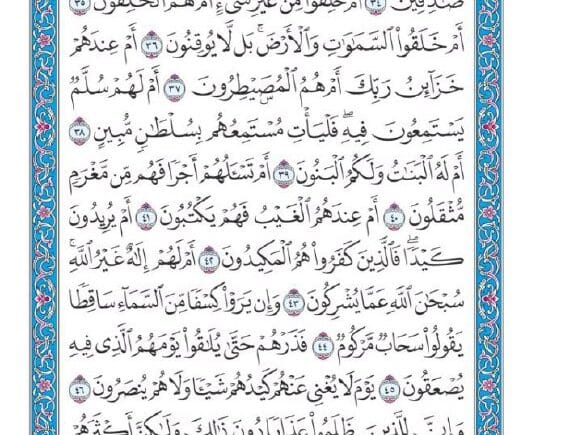 صَٰدِقِينَ ٣٤ أَمْ خُلِقُوا۟ مِنْ غَيْرِ شَىْءٍ أَمْ هُمُ ٱلْخَٰلِقُونَ ٣٥
أَمْ خَلَقُوا۟ ٱلسَّمَٰوَٰتِ وَٱلْأَرْضَ ۚ بَل لَّا يُوقِنُونَ ٣٦ أَمْ عِندَهُمْ
خَزَآئِنُ رَبِّكَ أَمْ هُمُ ٱلْمُصَۣيْطِرُونَ ٣٧ أَمْ لَهُمْ سُلَّمٌ
يَسْتَمِعُونَ فِيهِ ۖ فَلْيَأْتِ مُسْتَمِعُهُم بِسُلْطَٰنٍ مُّبِينٍ ٣٨
أَمْ لَهُ ٱلْبَنَٰتُ وَلَكُمُ ٱلْبَنُونَ ٣٩ أَمْ تَسْـَٔلُهُمْ أَجْرًا فَهُم مِّن مَّغْرَمٍ
مُّثْقَلُونَ ٤٠ أَمْ عِندَهُمُ ٱلْغَيْبُ فَهُمْ يَكْتُبُونَ ٤١ أَمْ يُرِيدُونَ
كَيْدًا ۖ فَٱلَّذِينَ كَفَرُوا۟ هُمُ ٱلْمَكِيدُونَ ٤٢ أَمْ لَهُمْ إِلَٰهٌ غَيْرُ ٱللَّهِ ۚ
سُبْحَٰنَ ٱللَّهِ عَمَّا يُشْرِكُونَ ٤٣ وَإِن يَرَوْا۟ كِسْفًا مِّنَ ٱلسَّمَآءِ سَاقِطًا
يَقُولُوا۟ سَحَابٌ مَّرْكُومٌ ٤٤ فَذَرْهُمْ حَتَّىٰ يُلَٰقُوا۟ يَوْمَهُمُ ٱلَّذِى فِيهِ
يُصْعَقُونَ ٤٥ يَوْمَ لَا يُغْنِى عَنْهُمْ كَيْدُهُمْ شَيْـًٔا وَلَا هُمْ يُنصَرُونَ ٤٦
وَإِنَّ لِلَّذِينَ ظَلَمُوا۟ عَذَابًا دُونَ ذَٰلِكَ وَلَٰكِنَّ أَكْثَرَهُمْ